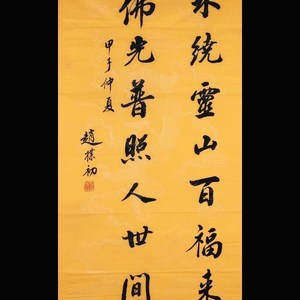 繞靈山百福来
佛光普照人世間
甲子仲夏
趙樸初